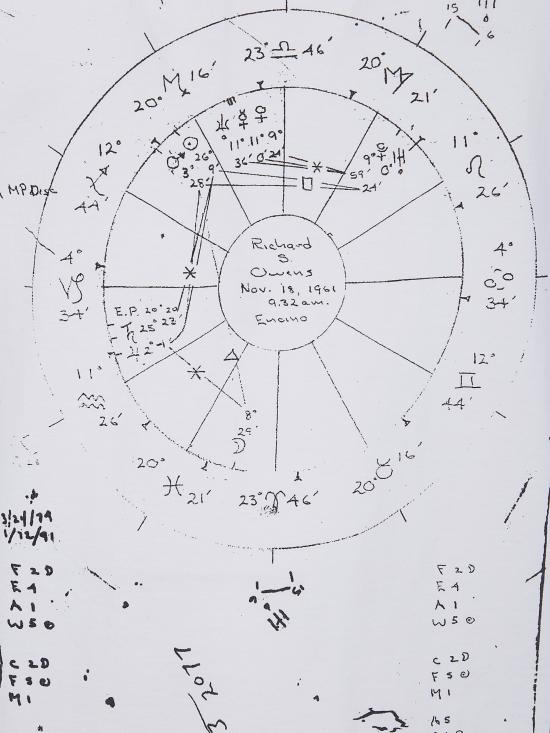 15
6
23° ♎ 46′
20° ♍ 21′
20° ♏ 16′
11° ♌ 26′
12° ♐ 44′
MP Disc
26°
9′
3°
28′
11° 11° 9°
36′ 0′ 24′
9° 0°
59′
24′
4° ♑ 34′
4° ♋ 34′
Richard
S.
Owens
Nov. 18, 1961
9:32 a.m.
Encino
E.P. 20° 20′
♄ 25° 22′
♃ 2°
12° ♊ 44′
11° ♒ 26′
8°
☽
20° ♓ 21′
23° ♈ 46′
20° ♉ 16′
3/24/79
1/12/91
F 2 D
E 4
A 1
W 5
C 2 D
F 5
M 1
F 2 D
E 4
A 1
W 5
C 2 D
F 5
M 1